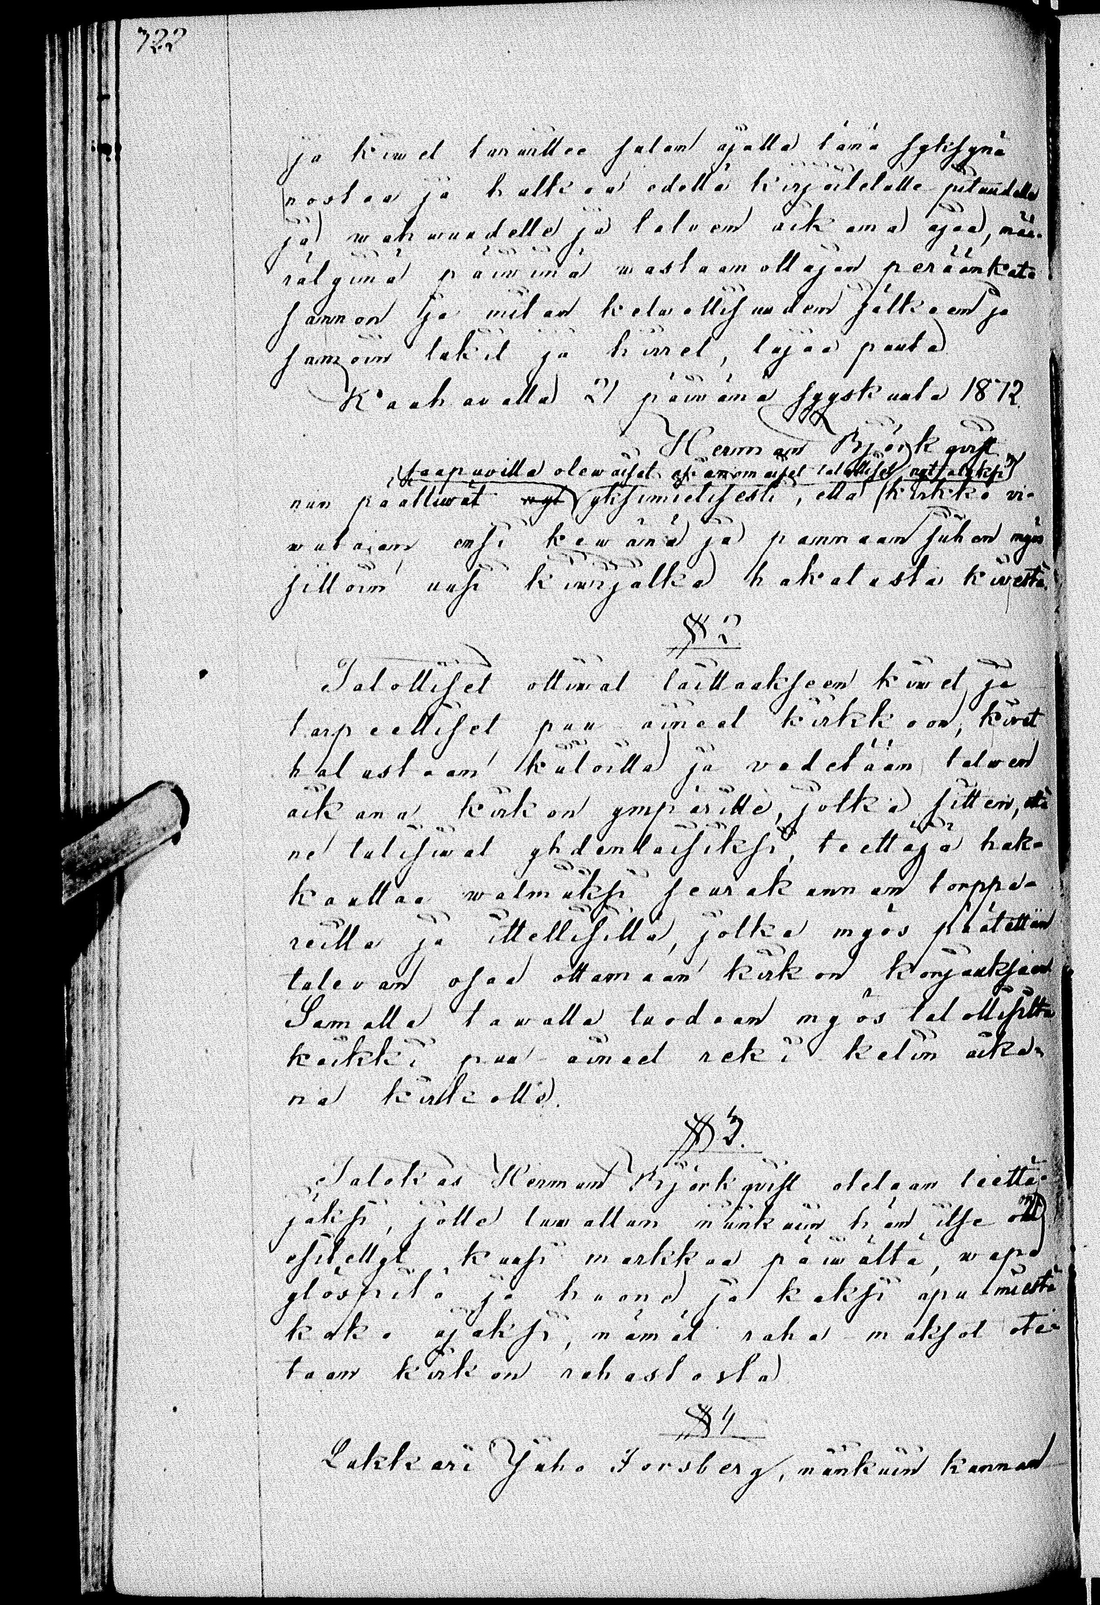 722
ja kiwet tarwittee sulan ajalla tänä syksynä
nostaa ja halkoa edellä kirjoitetulle pituudelle
ja wahwuudelle ja talwen aikana ajaa, mää-
rätyinä päiwinä wastaanottajan peräänkato
sannon ja mitan kelwollisuuden jälkeen ja
samoin tukit ja hirret, lujaa puuta
Kaahawalla 21 päiwänä syyskuuta 1872.
Herman Björkqvist
saapuvilla olewaiset asianomaiset talolliset
nun päättiwät yksimielisesti, että kirkko
ensi kewänä ja pannaan siihen myös
silloin uusi kiwijalka hakatusta kiwestä.
§ 2
Talolliset ottiwat laittaakseen kiwet ja
tarpeelliset puu aineet kirkkoon, kiwet
halastaan kiiloilla ja vedetään talwen
aikana kirkon ympärille, jotka sitten, että
ne tulisiwat yhdenlaisiksi, teettäjä hak-
kauttaa walmiiksi seurakunnan torppa-
reilla ja ittellisillä, jotka myös päätettiin
tulevan osaa ottamaan kirkon korjauksaan
Samalla tawalla tuodaan myös talollisilta
kaikki puu aineet reki kelin aika-
na kirkolle.
§ 3.
Talokas Herman Björkqvist otetaan teettä-
jäksi, jolle luwattiin niinkuin hän itse on
esitellyt kuusi markkaa päiwältä, wapa
ylöspito ja huone, ja kaksi apu miestä
koko ajaksi, nämät raha maksot ote-
taan kirkon rahastosta
§ 4
Lukkari Juho Forsberg, niinkuin kunnan